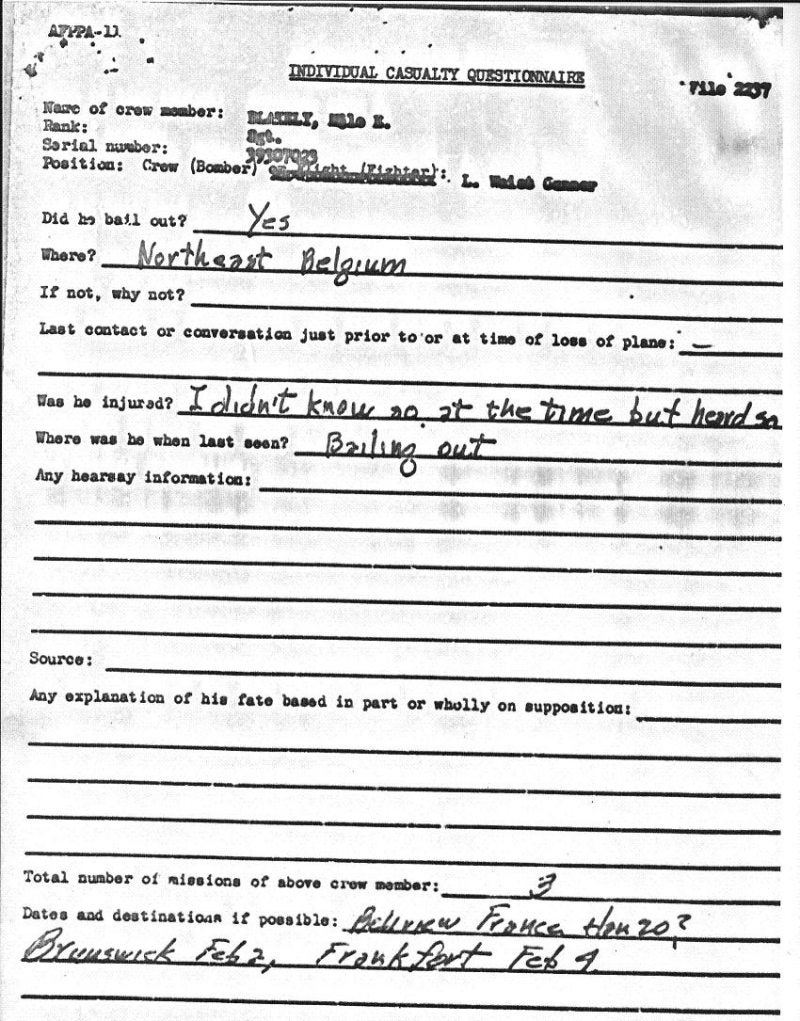 AFPPA-11
INDIVIDUAL CASUALTY QUESTIONNAIRE
File 2237
Name of crew member: BLAKELY, Milo E.
Rank: Sgt.
Serial number: 39307023
Position: Crew (Bomber) (Fighter): L. Waist Gunner
Did he bail out? Yes
Where? Northeast Belgium
If not, why not?
Last contact or conversation just prior to or at time of loss of plane: —
Was he injured? I didn't know so at the time but heard so
Where was he when last seen? Bailing out
Any hearsay information:
Source:
Any explanation of his fate based in part or wholly on supposition:
Total number of missions of above crew member: 3
Dates and destinations if possible: France 20?
Brunswick Feb 2, Frankfort Feb 4